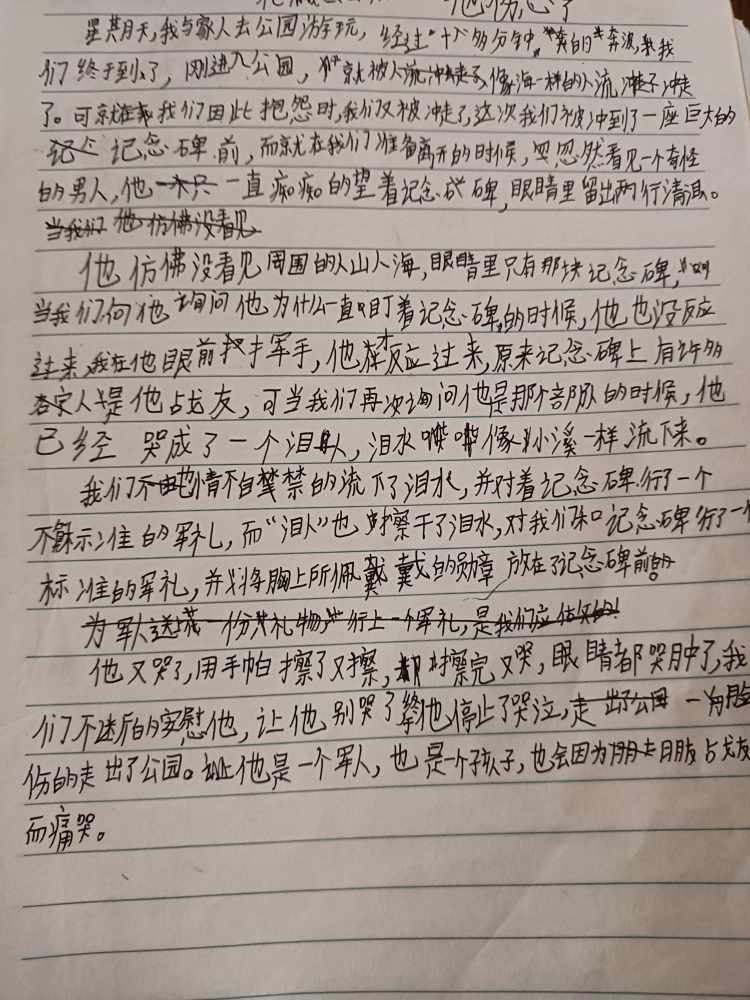 他伤心了
星期天,我与家人去公园游玩,经过"十"多分钟"奔波,我
们终于到了,刚进入公园,就被人流冲走了,像海一样的人流冲走
了。可就在我们因此抱怨时,我们又被冲走了,这次我们被冲到了一座巨大的
记念碑前,而就在我们准备离开的时候,忽然看见一个奇怪
的男人,他一直痴痴的望着记念碑,眼睛里留出两行清泪。
当我们他仿佛没看见
他仿佛没看见周围的人山人海,眼睛里只有那块记念碑,
当我们向他询问他为什么一直盯着记念碑的时候,他也没反应
过来,我在他眼前挥手,他才反应过来,原来记念碑上有许多
人是他战友,可当我们再次询问他是那个部队的时候,他
已经哭成了一个泪人,泪水哗哗像小溪一样流下来。
我们情不自禁的流下了泪水,并对着记念碑行了一个
不标准的军礼,而"泪人"也擦干了泪水,对我们和记念碑行了一个
标准的军礼,并将胸上所佩戴的勋章放在了记念碑前。
为军人送上一份"礼物"行上一个军礼,是我们应做的!
他又哭了,用手帕擦了又擦,擦完又哭,眼睛都哭肿了,我
们不断的安慰他,让他别哭了,他停止了哭泣,走出了公园一脸
伤的走出了公园。他是一个军人,也是一个孩子,也会因为朋战友
而痛哭。